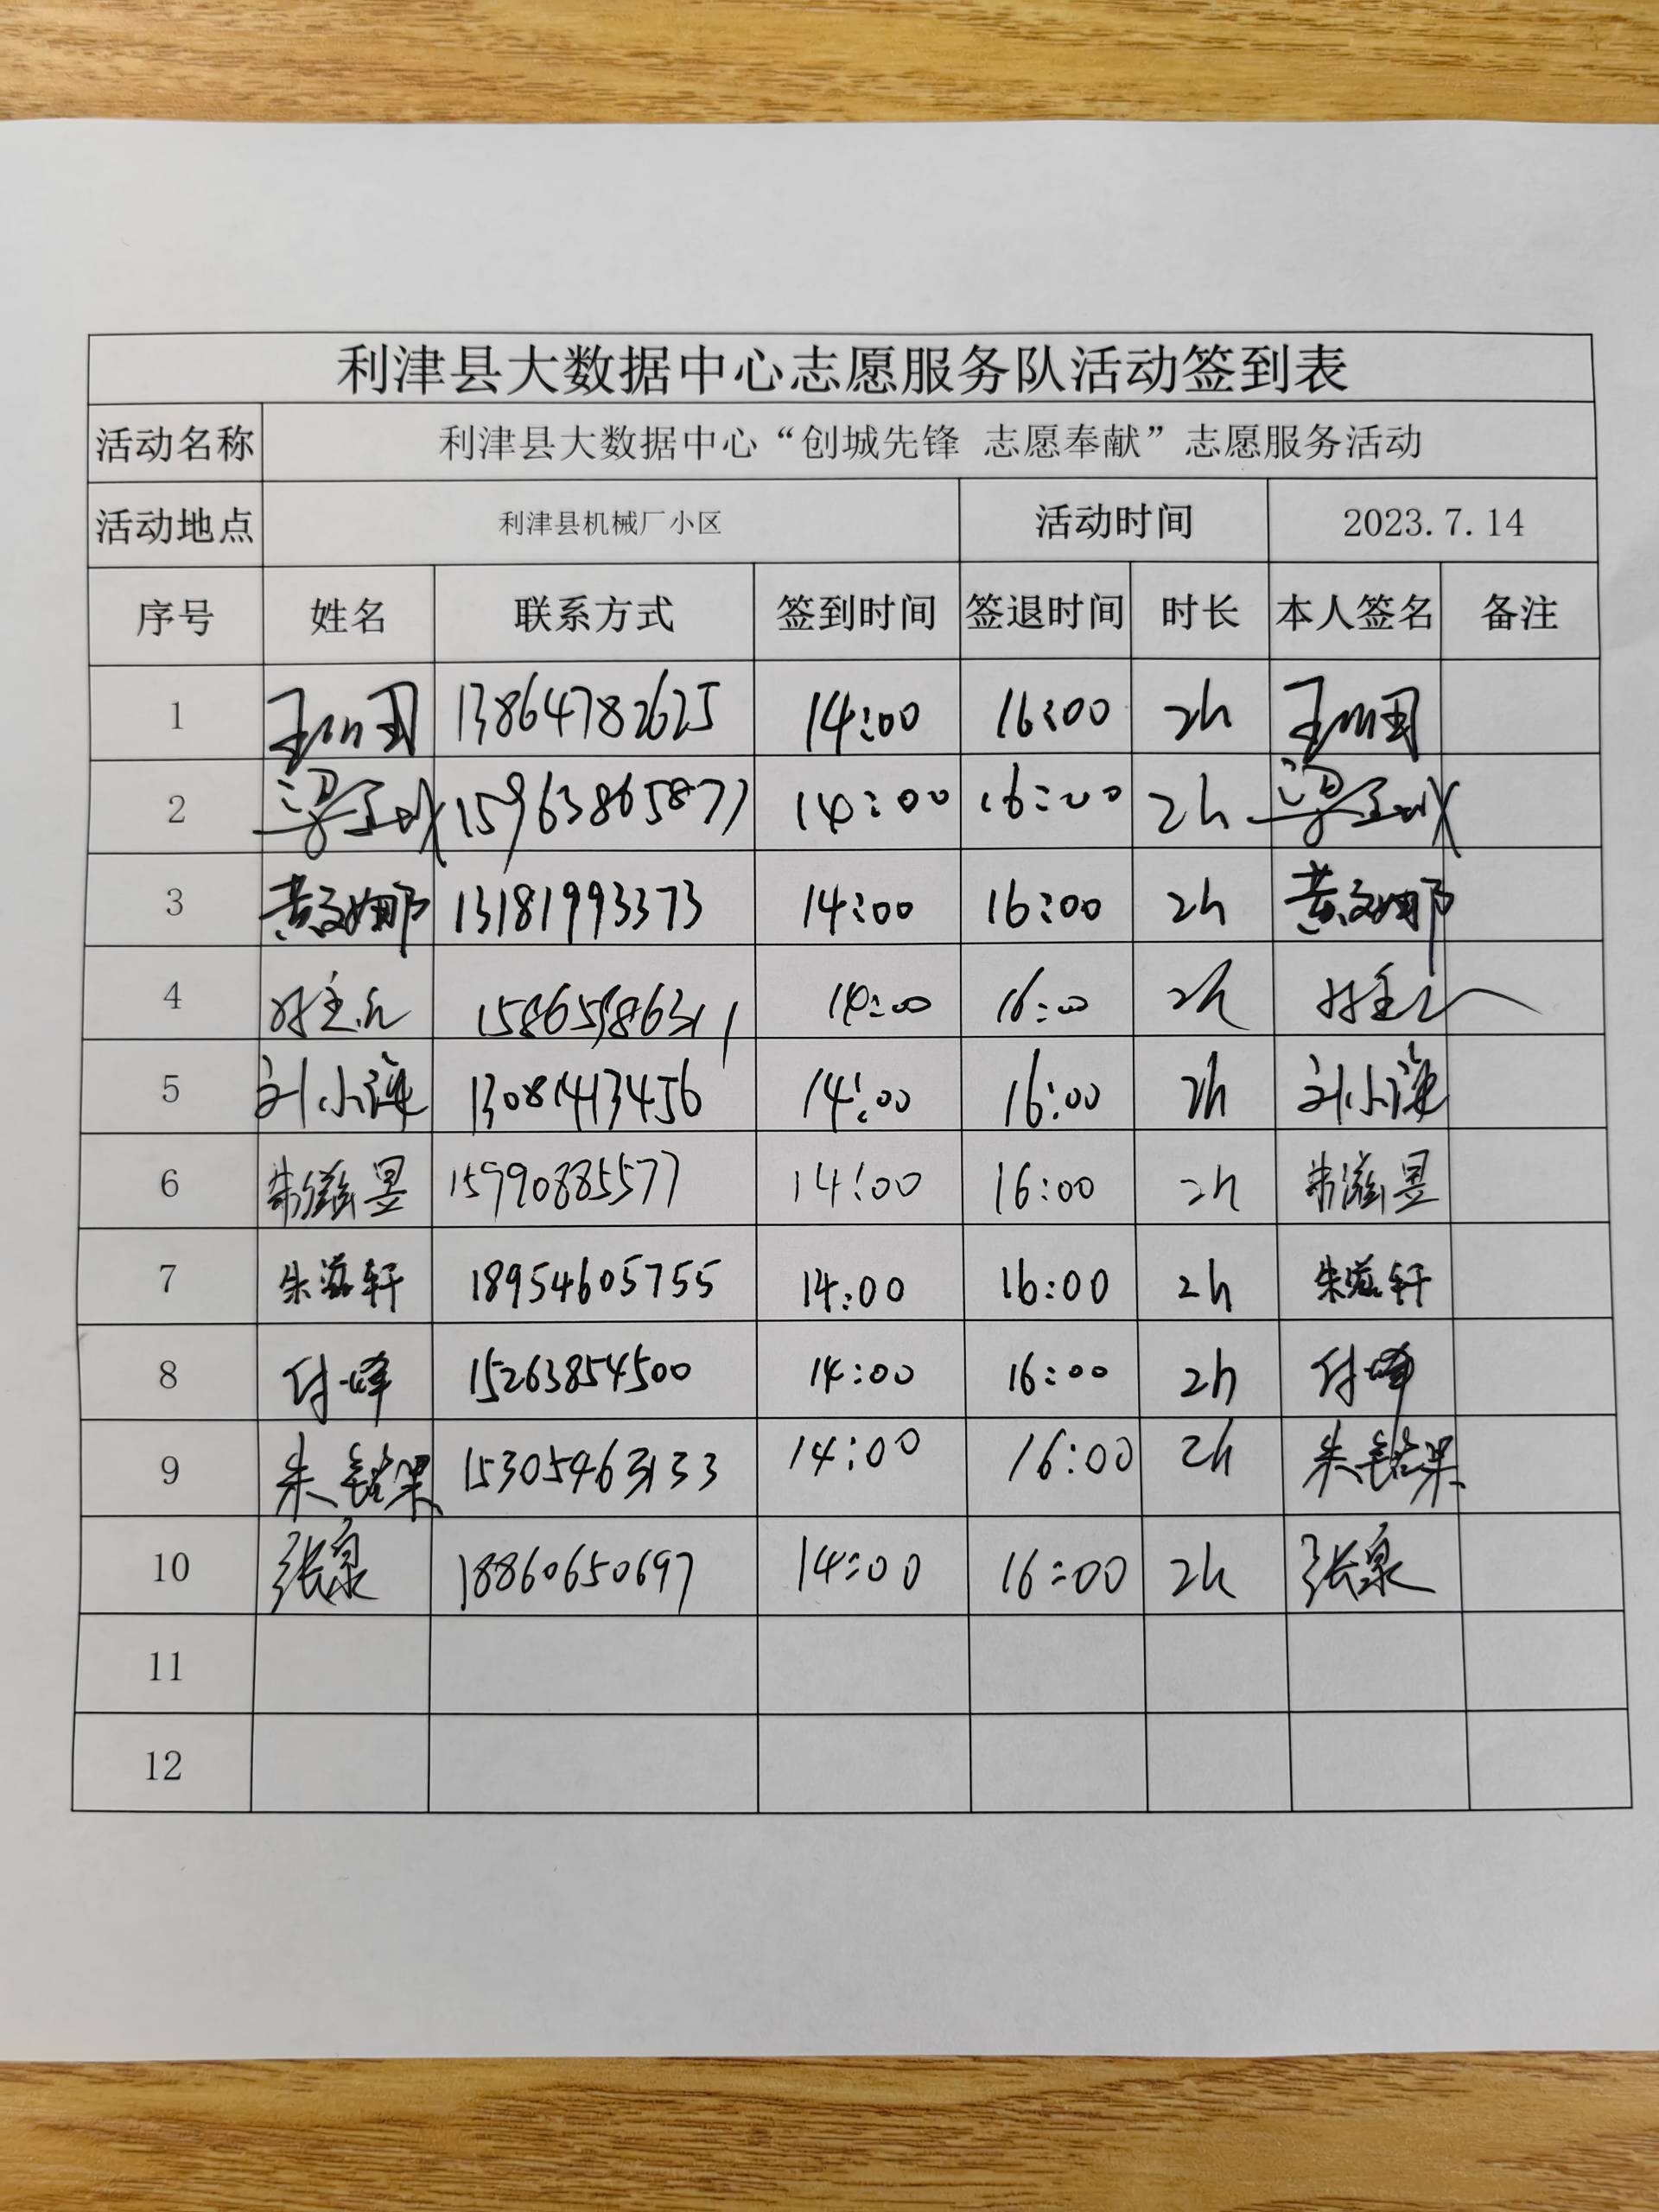 利津县大数据中心志愿服务队活动签到表
活动名称 利津县大数据中心“创城先锋 志愿奉献”志愿服务活动
活动地点 利津县机械厂小区 活动时间 2023.7.14
序号 姓名 联系方式 签到时间 签退时间 时长 本人签名 备注
1 13864782625 14:00 16:00 2h
2 15963865877 14:00 16:00 2h
3 黄文娜 13181993373 14:00 16:00 2h 黄文娜
4 14:00 16:00 2h
5 刘小海 14:00 16:00 2h 刘小海
6 朱滋昱 15990885577 14:00 16:00 2h 朱滋昱
7 朱滋轩 18954605755 14:00 16:00 2h 朱滋轩
8 付峰 15263854500 14:00 16:00 2h 付峰
9 朱铭果 14:00 16:00 2h 朱铭果
10 张泉 18860650697 14:00 16:00 2h 张泉
11
12